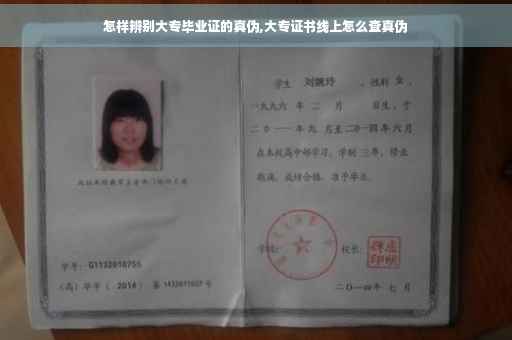 怎样辨别大专毕业证的真伪,大专证书线上怎么查真伪
学生 刘婉玲 ，性别 女 ，
一九九六 年 二 月 日生，于
二〇一一 年 九 月至 二〇一四 年 六 月
在本校高中部学习，学制 三年，修业
期满，成绩合格，准予毕业。
学校： 校长：
二〇一四年 七 月
学号： G1132010755
（高）毕字（ 2014 ）第 1432011027 号